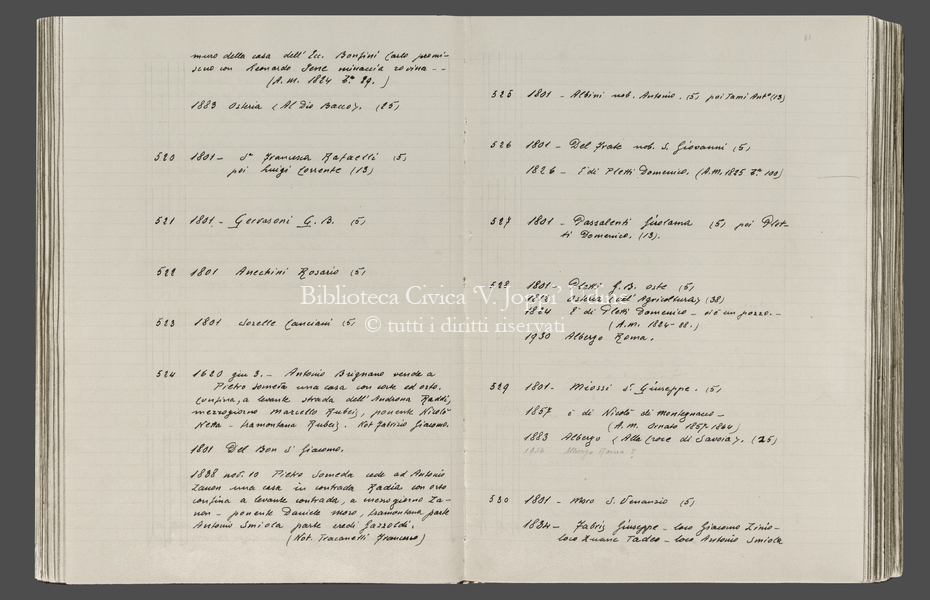 muro della casa dell' Ecc. Bonfini Carlo promi-
scuo con Leonardo Serre minaccia rovina --
(A.M. 1824 F.° 29.)
1883 Osteria (Al Dio Bacco). (25)
520 1801 - S.r Francesca Rafaelli (5)
poi Luigi Corrente (13)
521 1801 - Gervasoni G.B. (5)
522 1801 Anechini Rosario (5)
523 1801 Sorelle Canciani (5)
524 1620 giu 3. - Antonio Brignano vende a
Pietro Someda una casa con corte ed orto.
Confina, a levante strada dell' Androna Raddi,
mezzogiorno Marcello Rubeis, ponente Nicolò
Neta - tramontana Rubeis. Not Fabrizio Giacomo.
1801 Del Bon S.r Giacomo.
1838 nov. 10 Pietro Someda cede ad Antonio
Zanon una casa in contrada Radia con orto
confina a levante contrada, a mezzogiorno Za-
non - ponente Daniele Moro, tramontana parte
Antonio Smiola parte eredi Gazzoldi.
(Not. Tracanelli Francesco)
525 1801 - Albini nob. Antonio. (5) poi Tami Ant.° (13)
526 1801 - Del Frate nob. S. Giovanni (5)
1826 - È di Pletti Domenico. (A.M. 1825 F.° 100)
527 1801 - Passalenti Girolama (5) poi Plet-
ti Domenico. (13).
528 1801 - Pletti G.B. oste (5)
Osteria (All' Agricoltura) (38)
1824 È di Pletti Domenico - vi è un pozzo. -
(A.M. 1824-28.)
1930 Albergo Roma.
529 1801 - Miossi S.r Giuseppe. (5)
1857 è di Nicolò di Montegnaco -
(A.M. Ornato 1857-1864)
1883 Albergo (Alla Croce di Savoia). (25)
Albergo Roma ?
530 1801 - Moro S. Venanzio (5)
1834 - Fabris Giuseppe - loco Giacomo Zinio -
loco Xuanc Tadeo - loco Antonio Smiola
Biblioteca Civica 'V. Joppi' Udine
© tutti i diritti riservati